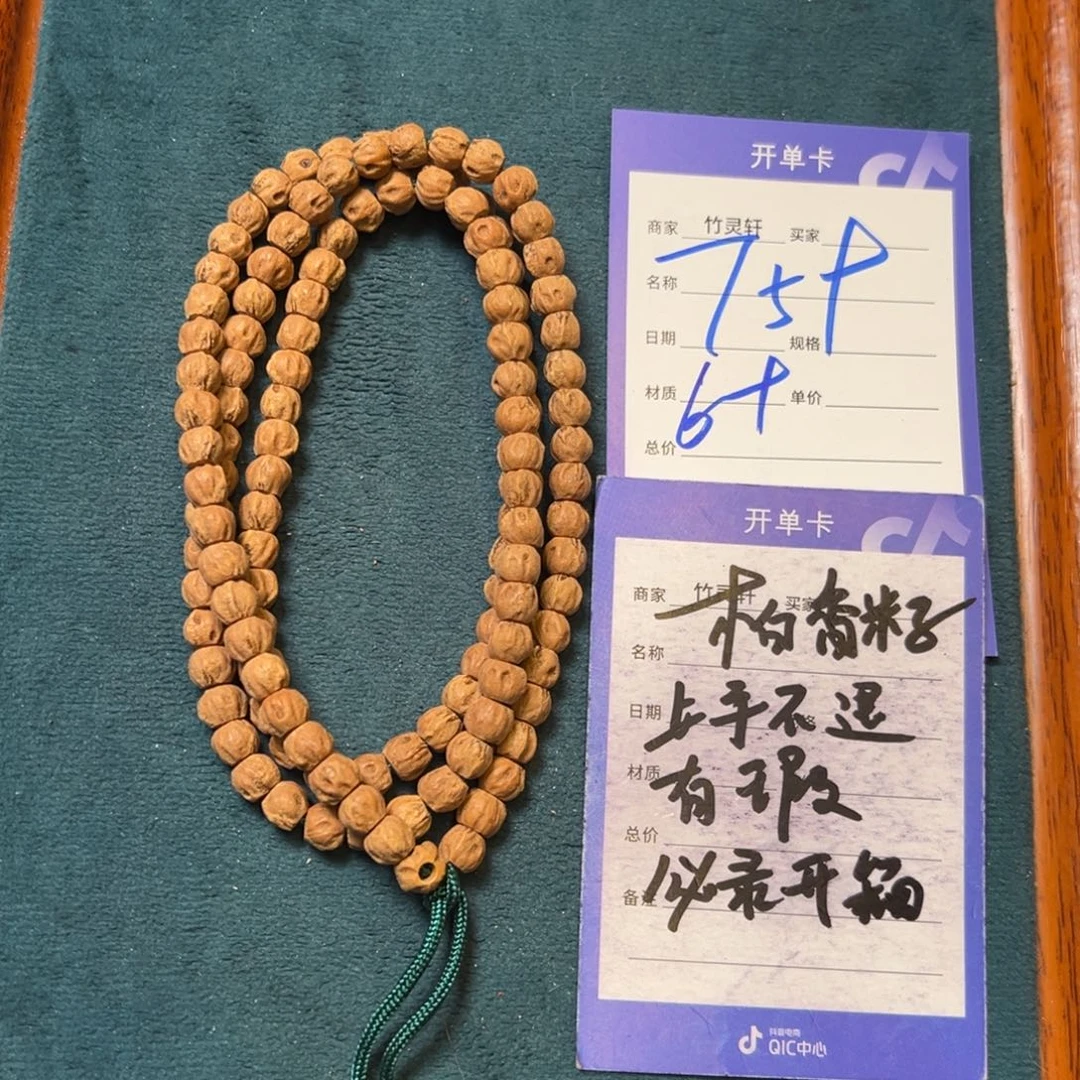 开单卡
商家 竹灵轩 买家
名称
75十
日期 规格
材质 单价
6十
总价
开单卡
商家 竹灵轩 买家
柏香籽
名称
日期
上手不退
材质
有瑕
总价
备注
必录开箱
抖音电商
QIC中心